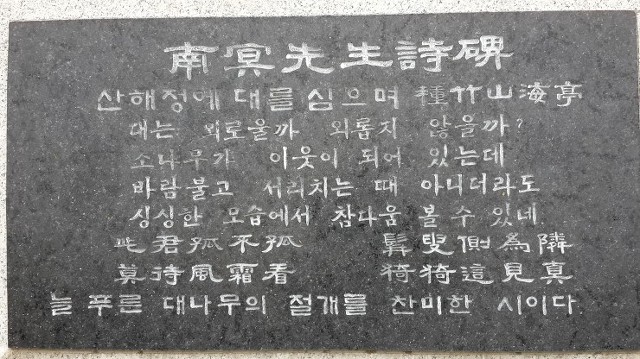 南冥先生詩碑
산해정에 대를 심으며 種竹山海亭
대는 외로울까 외롭지 않을까?
소나무가 이웃이 되어 있는데
바람불고 서리치는 때 아니더라도
싱싱한 모습에서 참다움 볼 수 있네
此君孤不孤 髯叟側為隣
莫待風霜看 猗猗這見真
늘 푸른 대나무의 절개를 찬미한 시이다.